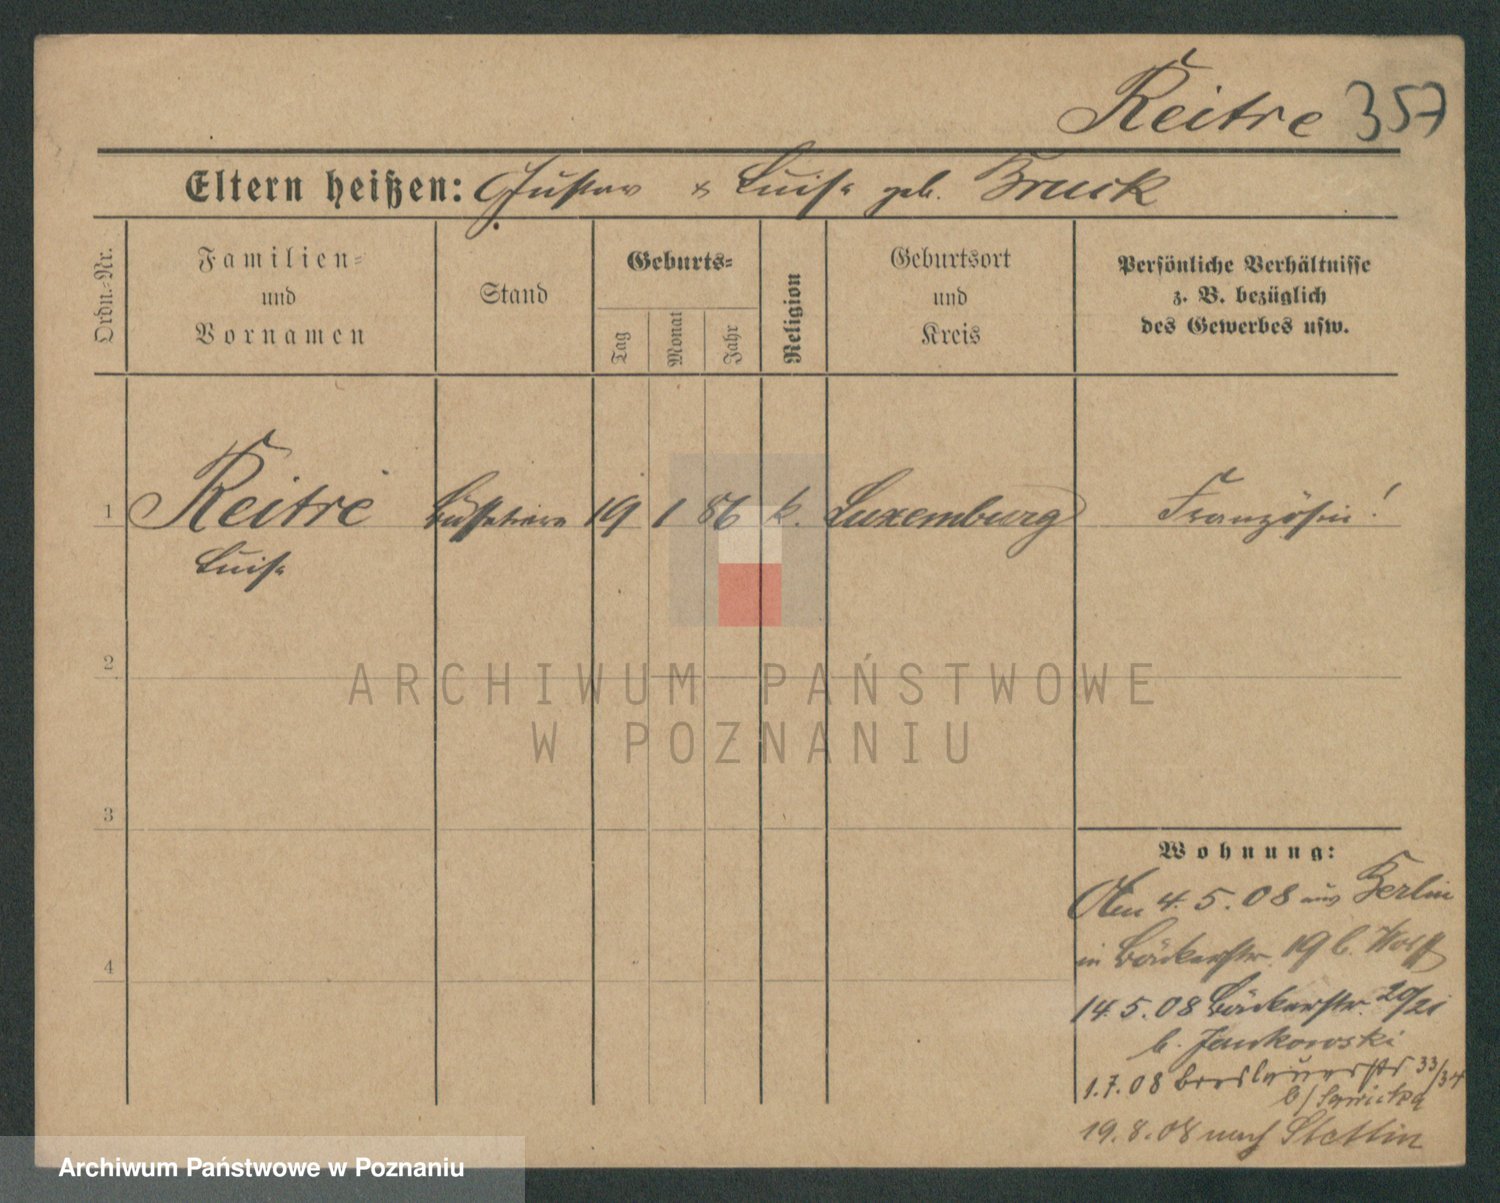 Reitre 357
Eltern heißen: Gustav & Luise geb. Bruck
Ordn.-Nr.
Familien-
und
Vornamen
Stand
Geburts-
Tag
Monat
Jahr
Religion
Geburtsort
und
Kreis
Persönliche Verhältnisse
z. B. bezüglich
des Gewerbes usw.
1 Reitre 19 1 86 k. Luxemburg Französin!
Luise
2
3
4
ARCHIWUM PAŃSTWOWE
W POZNANIU
Wohnung:
Am 4.5.08 aus Berlin
in Bäckerstr. 19 b. Wolff
14.5.08 Bäckerstr. 20/21
b. Jankowski
1.7.08 Breslauerstr 33/34
b/
19.8.08 nach Stettin
Archiwum Państwowe w Poznaniu